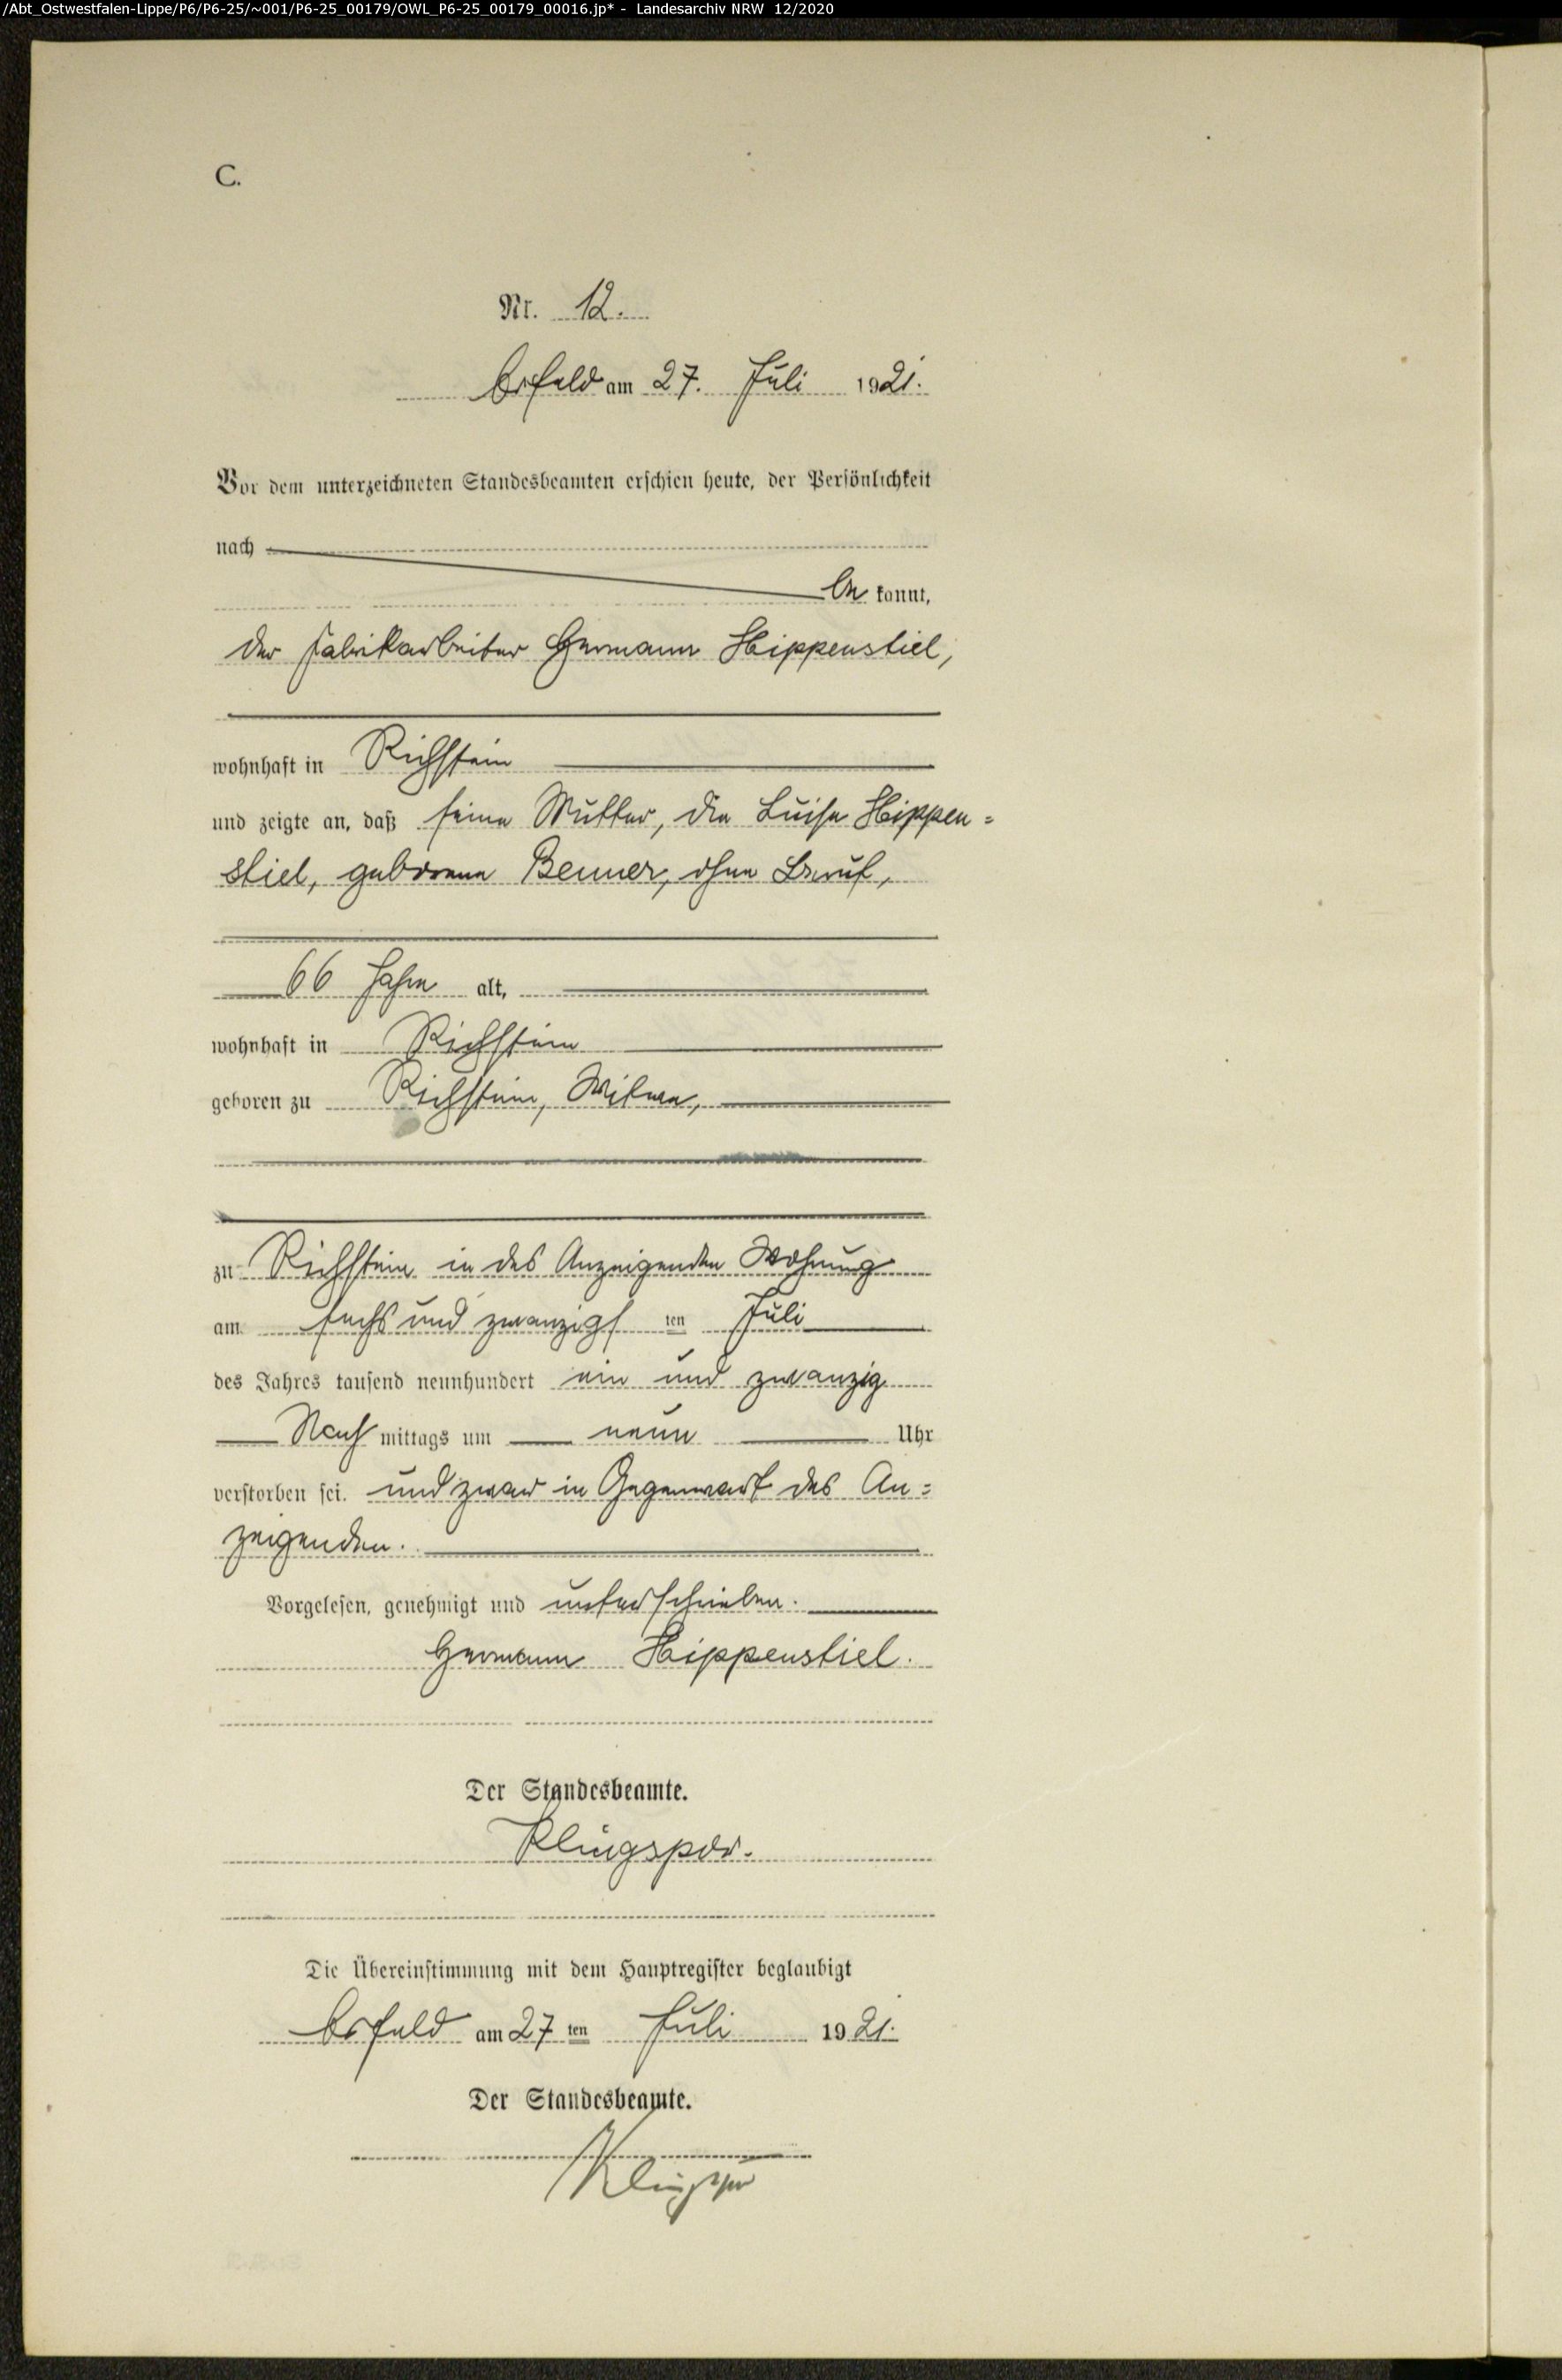 /Abt_Ostwestfalen-Lippe/P6/P6-25/~001/P6-25_00179/OWL_P6-25_00179_00016.jp* - Landesarchiv NRW 12/2020
C.
Nr. 12.
Arfeld am 27. Juli 1921.
Vor dem unterzeichneten Standesbeamten erschien heute, der Persönlichkeit
nach
be kannt,
der Fabrikarbeiter Hermann Hippenstiel,
wohnhaft in Richstein
und zeigte an, daß seine Mutter, die Luise Hippen=
stiel, geborene Benner, ohne Beruf,
66 Jahre alt,
wohnhaft in Richstein
geboren zu Richstein, Witwe,
zu Richstein in des Anzeigenden Wohnung
am sechs und zwanzigs ten Juli
des Jahres tausend neunhundert ein und zwanzig
Nach mittags um neun Uhr
verstorben sei. und zwar in Gegenwart des An=
zeigenden.
Vorgelesen, genehmigt und unterschrieben.
Hermann Hippenstiel.
Der Standesbeamte.
Klingspor.
Die Übereinstimmung mit dem Hauptregister beglaubigt
Arfeld am 27 ten Juli 1921.
Der Standesbeamte.
Klingspor